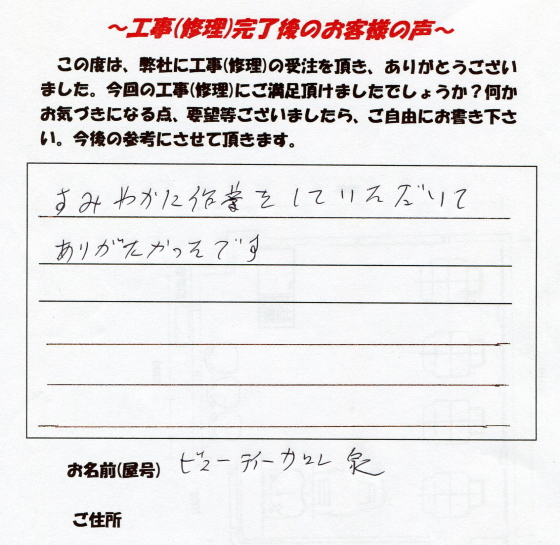 ～工事(修理)完了後のお客様の声～
この度は、弊社に工事(修理)の受注を頂き、ありがとうござい
ました。今回の工事(修理)にご満足頂けましたでしょうか？何か
お気づきになる点、要望等ございましたら、ご自由にお書き下さ
い。今後の参考にさせて頂きます。
すみやかに作業をしていただいて
ありがたかったです
お名前(屋号) ビューティーカロレ
ご住所